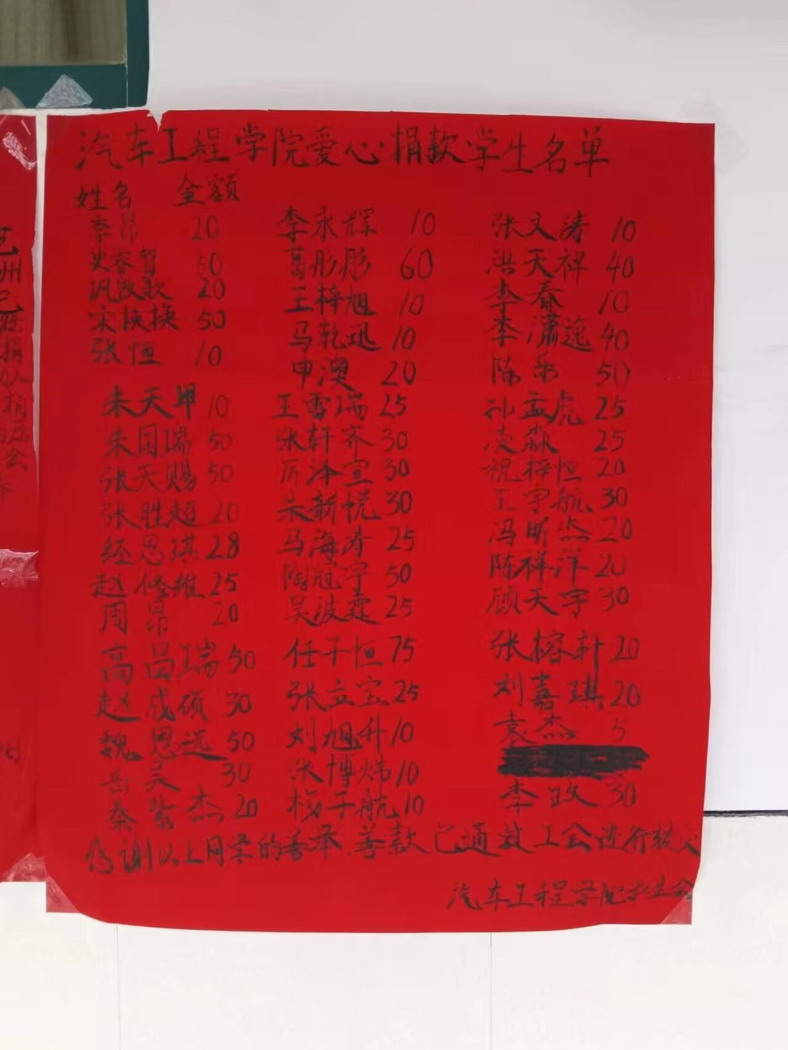 汽车工程学院爱心捐款学生名单
姓名 金额
李昂 20 李永辉 10 张文涛 10
50 葛彤彤 60 洪天祥 40
20 王梓旭 10 李春 10
宋换换 50 马乾迅 10 李潇逸 40
张恒 10 甲澳 20 陈乐 50
朱天坤 10 王雪瑞 25 孙孟虎 25
朱国瑞 50 张轩齐 30 凌淼 25
张天赐 50 厉泽宣 30 祝梓恒 20
张胜超 20 朱新悦 30 王宇航 30
经思琪 28 马海涛 25 冯昕杰 20
赵修维 25 陶冠宇 50 陈祥洋 20
周昂 20 吴波霆 25 顾天宇 30
高昌瑞 50 任子恒 75 张榕轩 20
赵成硕 30 张立宝 25 刘嘉琪 20
魏恩远 50 刘旭升 10 袁杰 5
岳昊 30 张博炜 10
秦紫杰 20 杨子航 10 李政 30
感谢以上同学的善举,善款已通过工会进行转交
汽车工程学院学生会